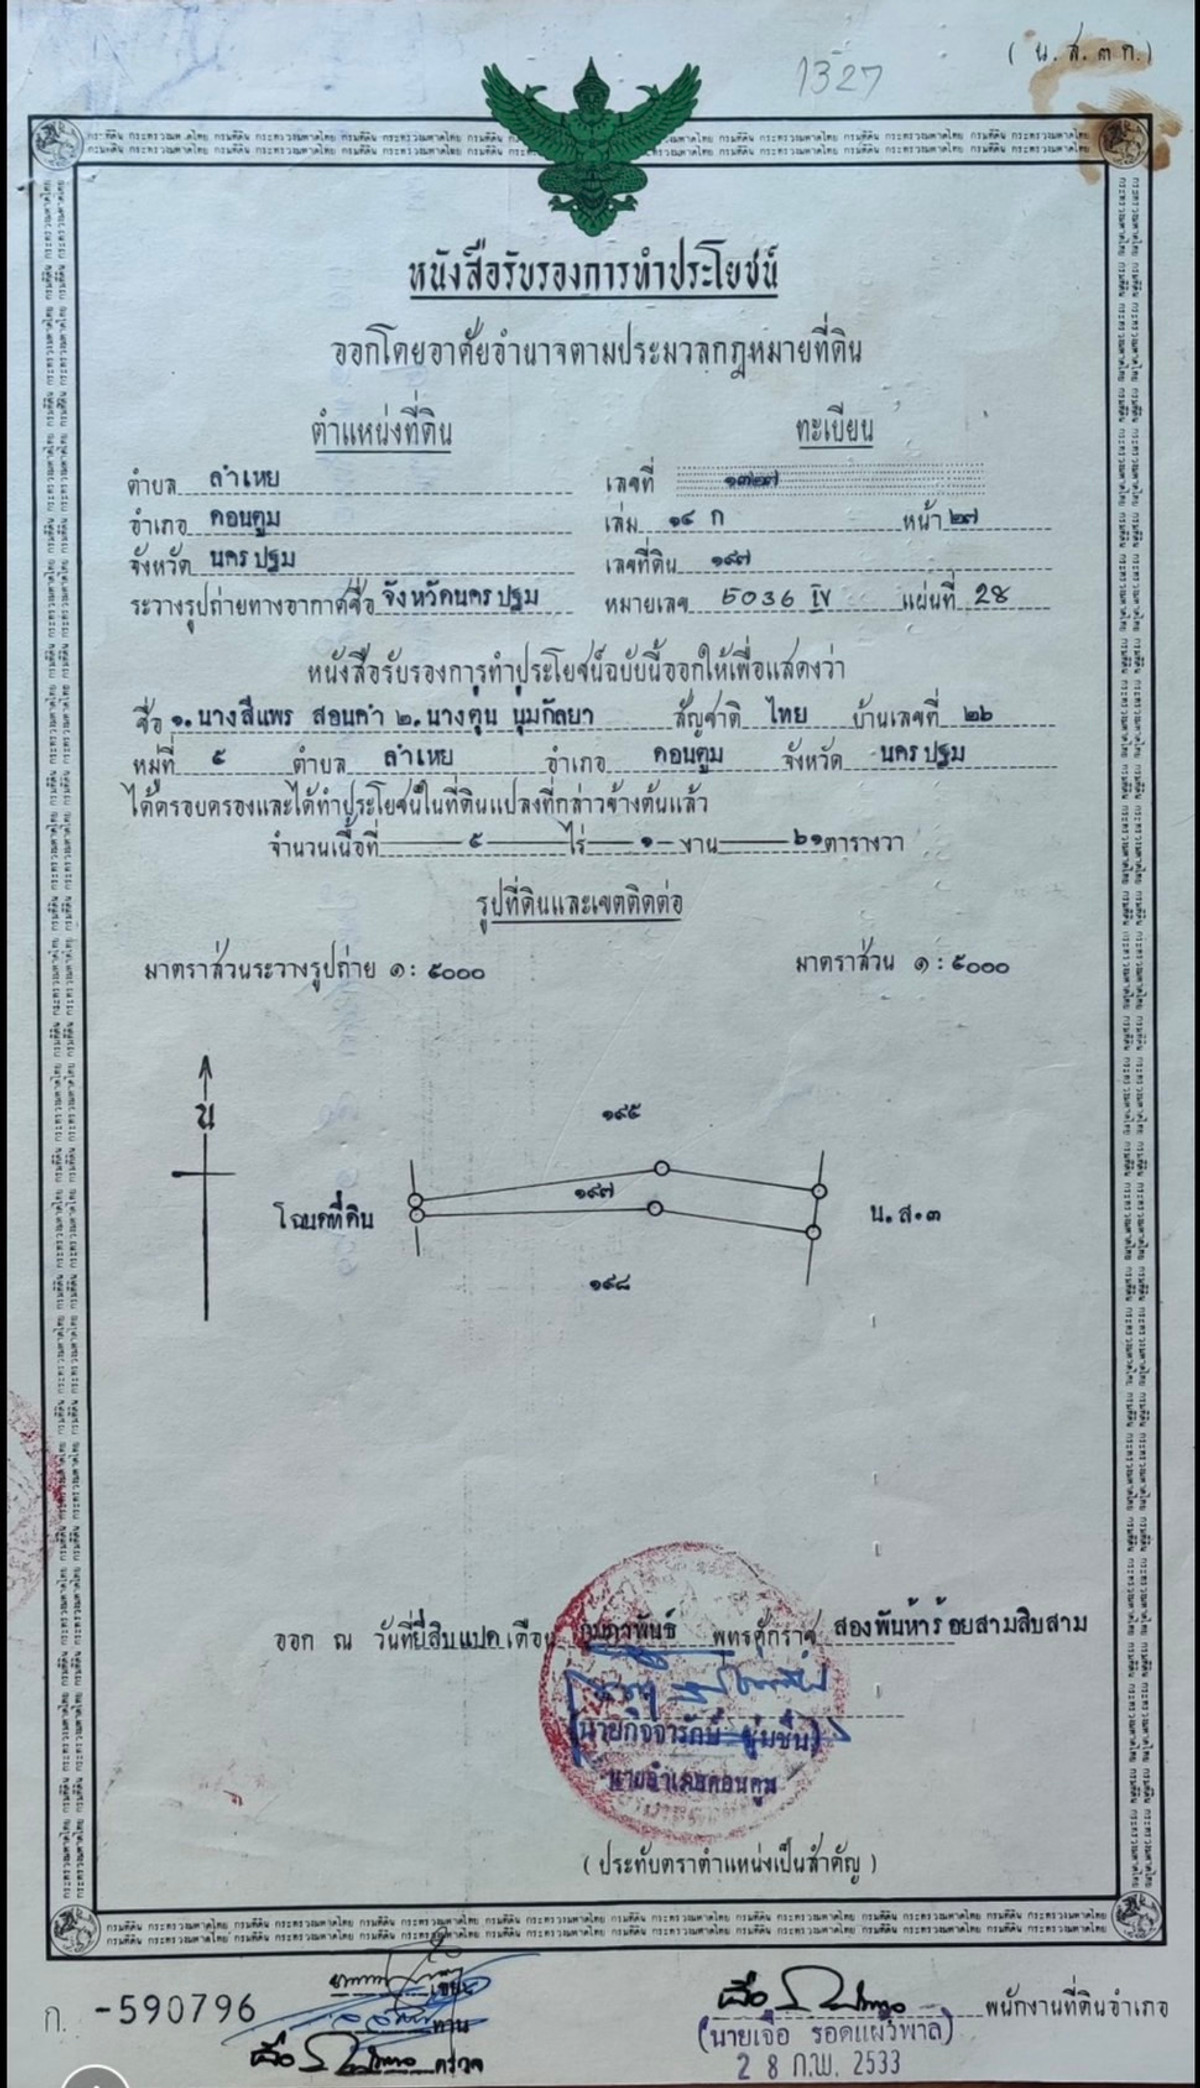 ( น.ส.๓ ก.)
1327
หนังสือรับรองการทำประโยชน์
ออกโดยอาศัยอำนาจตามประมวลกฎหมายที่ดิน
ตำแหน่งที่ดิน ทะเบียน
ตำบล ลำเหย เลขที่ ๑๓๒๗
อำเภอ ดอนตูม เล่ม ๑๔ ก หน้า ๒๗
จังหวัด นครปฐม เลขที่ดิน ๑๙๗
ระวางรูปถ่ายทางอากาศชื่อ จังหวัดนครปฐม หมายเลข 5036 IV แผ่นที่ 28
หนังสือรับรองการทำประโยชน์ฉบับนี้ออกให้เพื่อแสดงว่า
ชื่อ ๑. นางสีแพร สอนดำ ๒. นางตุ่น นุ่มกัลยา สัญชาติ ไทย บ้านเลขที่ ๒๖
หมู่ที่ ๕ ตำบล ลำเหย อำเภอ ดอนตูม จังหวัด นครปฐม
ได้ครอบครองและได้ทำประโยชน์ในที่ดินแปลงที่กล่าวข้างต้นแล้ว
จำนวนเนื้อที่ ๕ ไร่ ๑ งาน ๖๑ ตารางวา
รูปที่ดินและเขตติดต่อ
มาตราส่วนระวางรูปถ่าย ๑ : ๕๐๐๐ มาตราส่วน ๑ : ๕๐๐๐
น
๑๙๕
๑๙๗
โฉนดที่ดิน น.ส.๓
๑๙๘
ออก ณ วันที่ยี่สิบแปด เดือน กุมภาพันธ์ พุทธศักราช สองพันห้าร้อยสามสิบสาม
(นายกิจจารักษ์ ชุ่มชื่น)
นายอำเภอดอนตูม
( ประทับตราตำแหน่งเป็นสำคัญ )
กรมที่ดิน กระทรวงมหาดไทย
เขียน
ก. -590796 ทาน
ตรวจ
พนักงานที่ดินอำเภอ
(นายเจือ รอดแผ้วพาล)
2 8 ก.พ. 2533